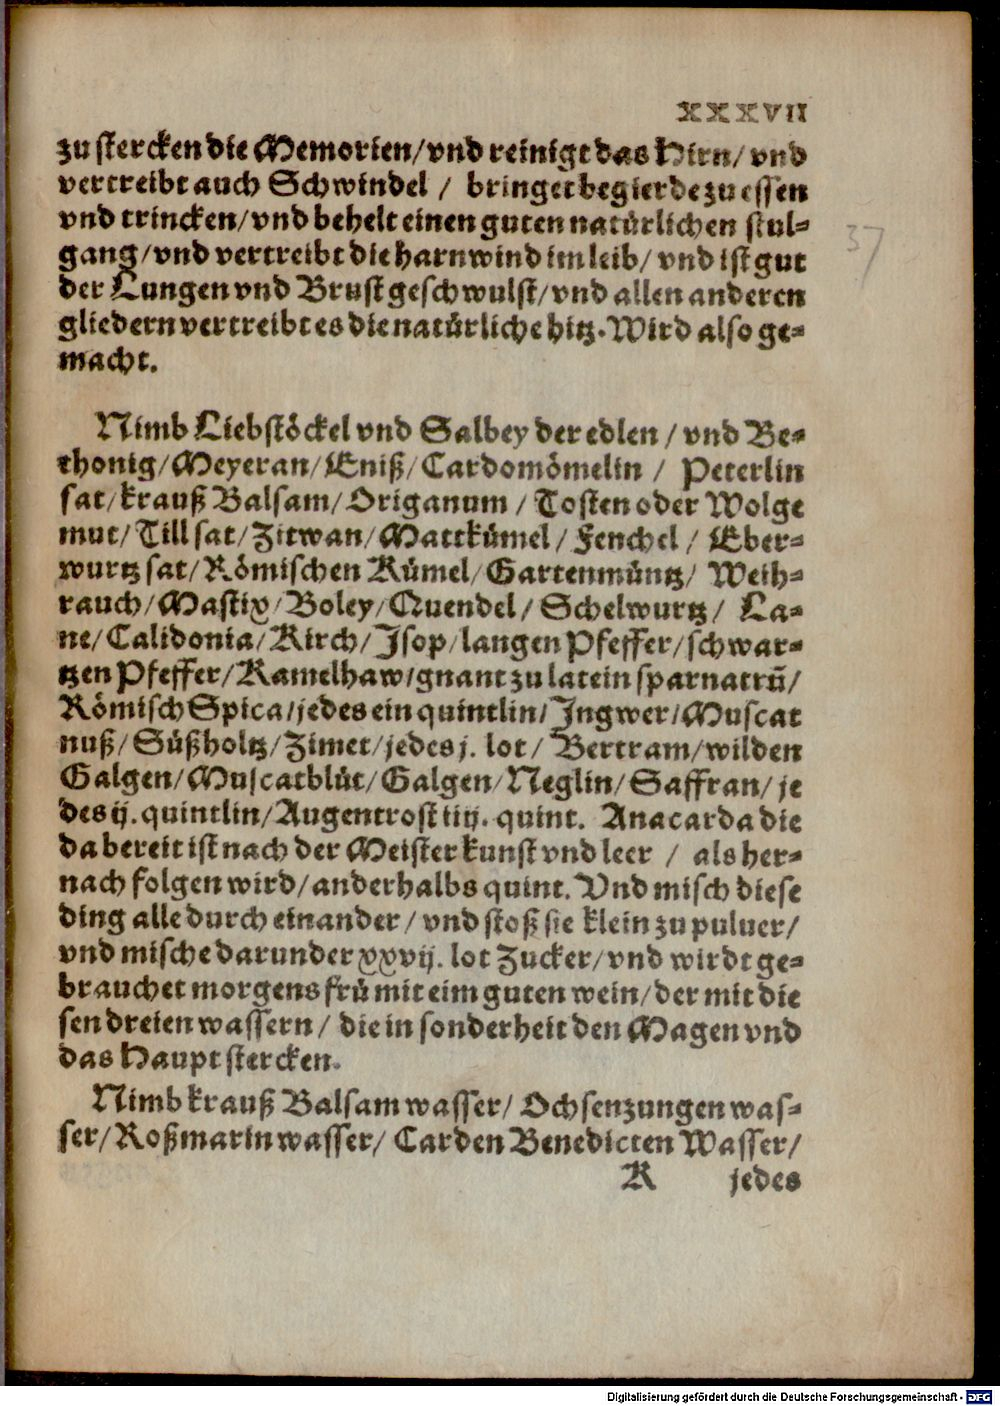 XXXVII
zu stercken die Memorien/vnd reinigt das Hirn/ vnd
vertreibt auch Schwindel / bringet begierde zu essen
vnd trincken/vnd behelt einen guten natürlichen stul-
gang/vnd vertreibt die harnwind im leib/ vnd ist gut
der Lungen vnd Brust geschwulst/vnd allen anderen
gliedern vertreibt es die natürliche hitz. Wird also ge-
macht.
Nimb Liebstöckel vnd Salbey der edlen / vnd Be-
thonig/Meyeran/Eniß/Cardomömelin / Peterlin
sat/krauß Balsam/Origanum / Tosten oder Wolge
mut/Till sat/Zitwan/Mattkümel/Fenchel / Eber-
wurtz sat/Römischen Kümel/Gartenmüntz/ Weih-
rauch/Mastix/Boley/Quendel/ Schelwurtz/ La-
ne/Calidonia/Kirch/Isop/langen Pfeffer/schwar-
tzen Pfeffer/Kamelhaw/gnant zu latein sparnatrū/
Römisch Spica/jedes ein quintlin/Ingwer/Muscat
nuß/Süßholtz/Zimet/jedes j. lot/ Bertram/wilden
Galgen/Muscatblüt/Galgen/Neglin/Saffran/je
des ij. quintlin/Augentrost iiij. quint. Anacarda die
da bereit ist nach der Meister kunst vnd leer / als her-
nach folgen wird/anderhalbs quint. Vnd misch diese
ding alle durch einander/ vnd stoß sie klein zu puluer/
vnd mische darunder xxvij. lot Zucker/vnd wirdt ge-
brauchet morgens frü mit eim guten wein/der mit die
sen dreien wassern/ die in sonderheit den Magen vnd
das Haupt stercken.
Nimb krauß Balsam wasser/ Ochsenzungen was-
ser/Roßmarin wasser/ Carden Benedicten Wasser/
K jedes
37
Digitalisierung gefördert durch die Deutsche Forschungsgemeinschaft - DFG